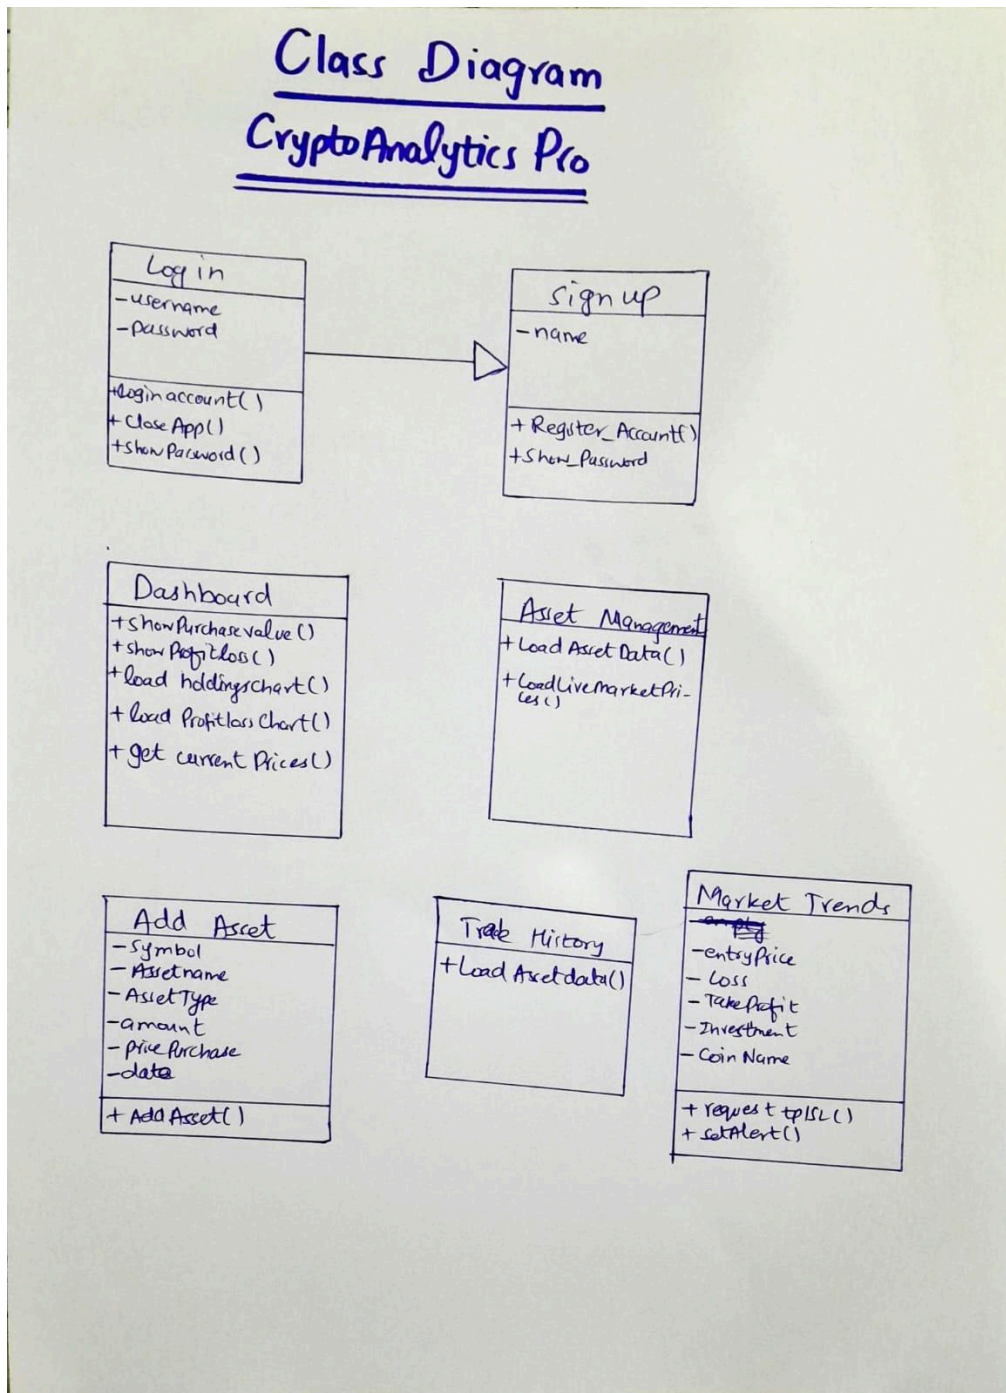 Class Diagram
CryptoAnalytics Pro
Login
-username
-password
+Loginaccount()
+CloseApp()
+ShowPassword()
Signup
-name
+Register_Account()
+Show_Password
Dashboard
+showPurchasevalue()
+showProfitloss()
+load holdingschart()
+load Profitloss Chart()
+get current Prices()
Asset Management
+Load Asset Data()
+LoadLiveMarketPri-
ces()
Add Asset
-Symbol
-Assetname
-AssetType
-amount
-pricePurchase
-date
+AddAsset()
Trade History
+Load Assetdata()
Market Trends
-entryPrice
-Loss
-TakeProfit
-Investment
-Coin Name
+request tp/SL()
+setAlert()